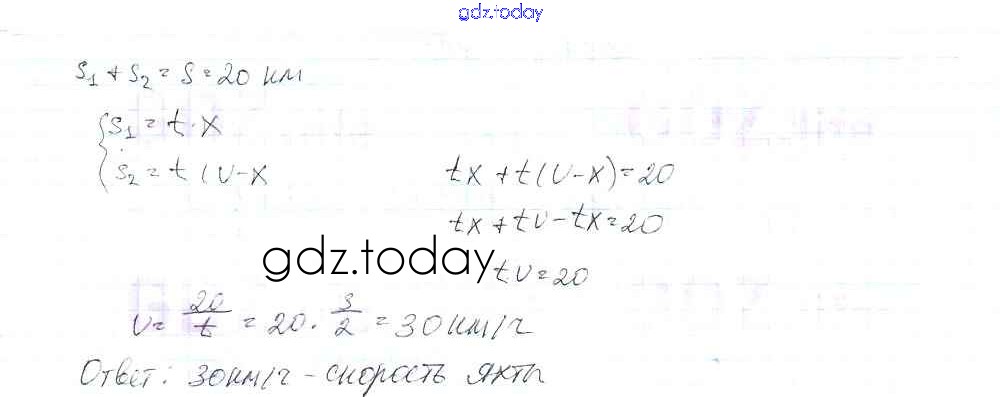 gdz.today
S₁ + S₂ = S = 20 км
{ S₁ = t · x
{ S₂ = t (v - x
tx + t(v - x) = 20
tx + tv - tx = 20
gdz.today
tv = 20
v = 20/t = 20 · 3/2 = 30 км/ч
Ответ: 30км/ч - скорость яхты